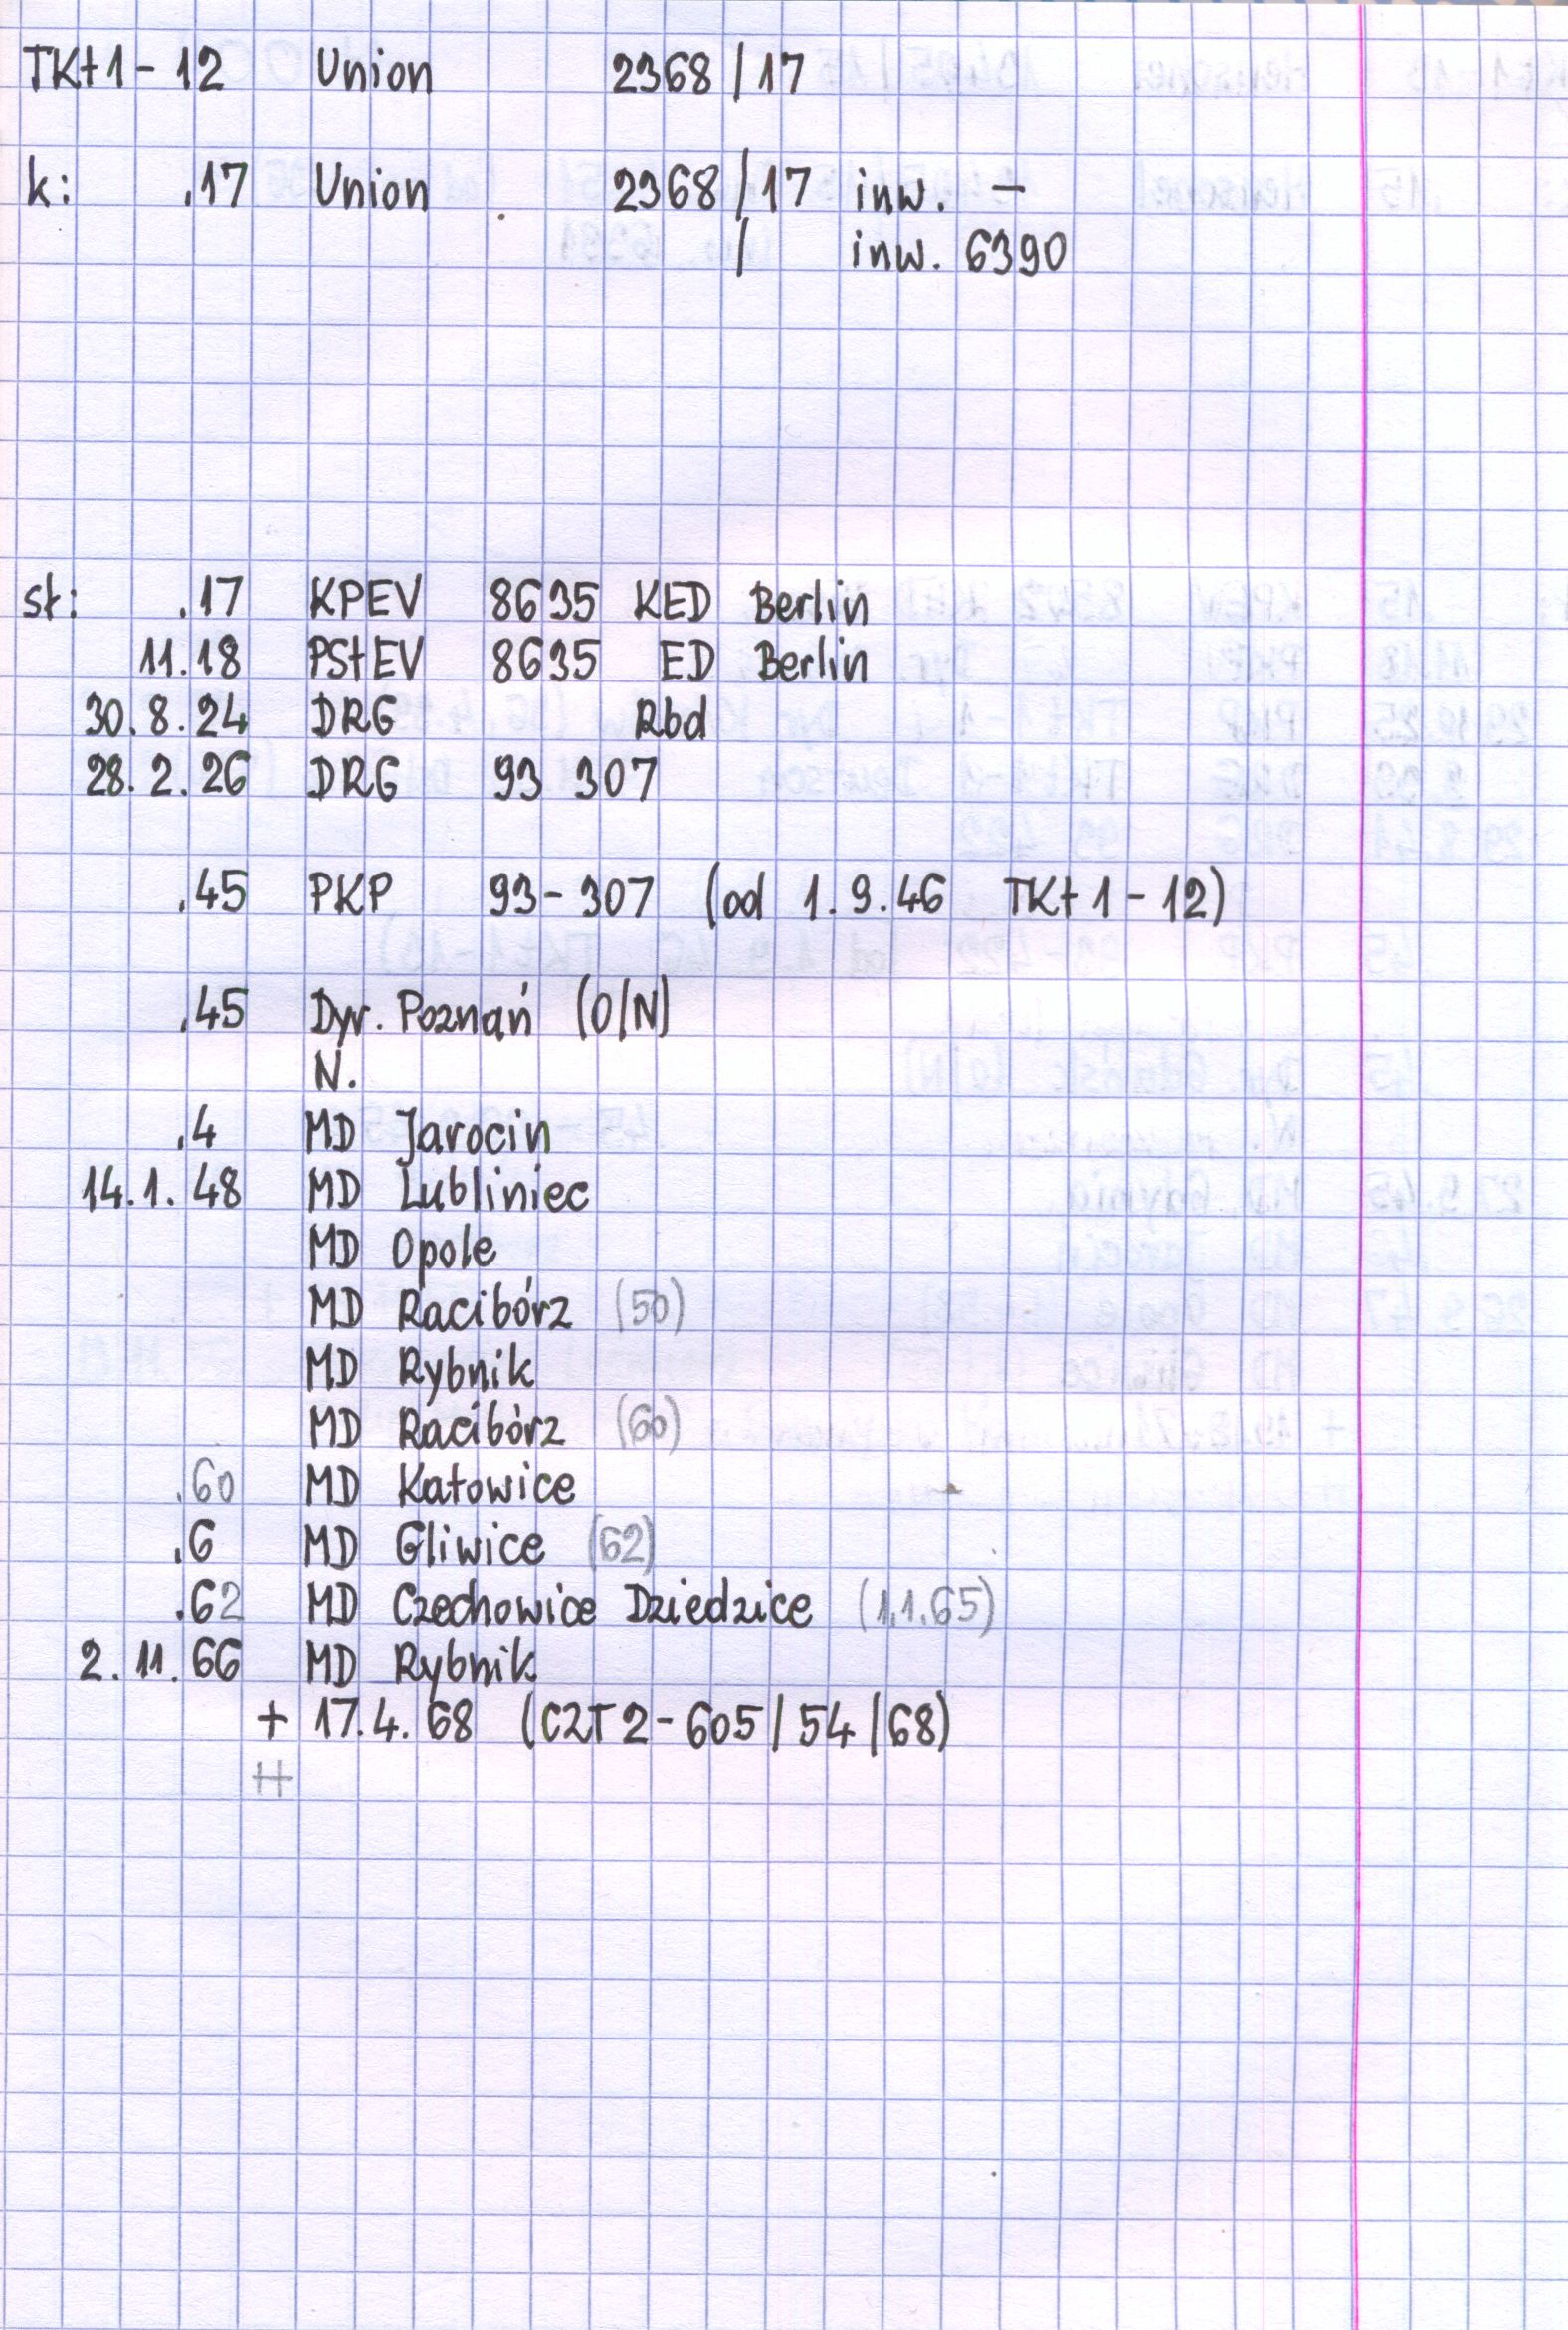 TKt1-12 Union 2368/17
k: .17 Union 2368/17 inw. -
/ inw. 6390
st: .17 KPEV 8635 KED Berlin
11.18 PStEV 8635 ED Berlin
30.8.24 DRG Rbd
28.2.26 DRG 93 307
.45 PKP 93-307 (od 1.9.46 TKt1-12)
.45 Dyr. Poznań (O/N)
N.
.4 MD Jarocin
14.1.48 MD Lubliniec
MD Opole
MD Racibórz (50)
MD Rybnik
MD Racibórz (60)
.60 MD Katowice
.6 MD Gliwice (62)
.62 MD Czechowice Dziedzice (1.1.65)
2.11.66 MD Rybnik
+ 17.4.68 (CZT2-605/54/68)
++